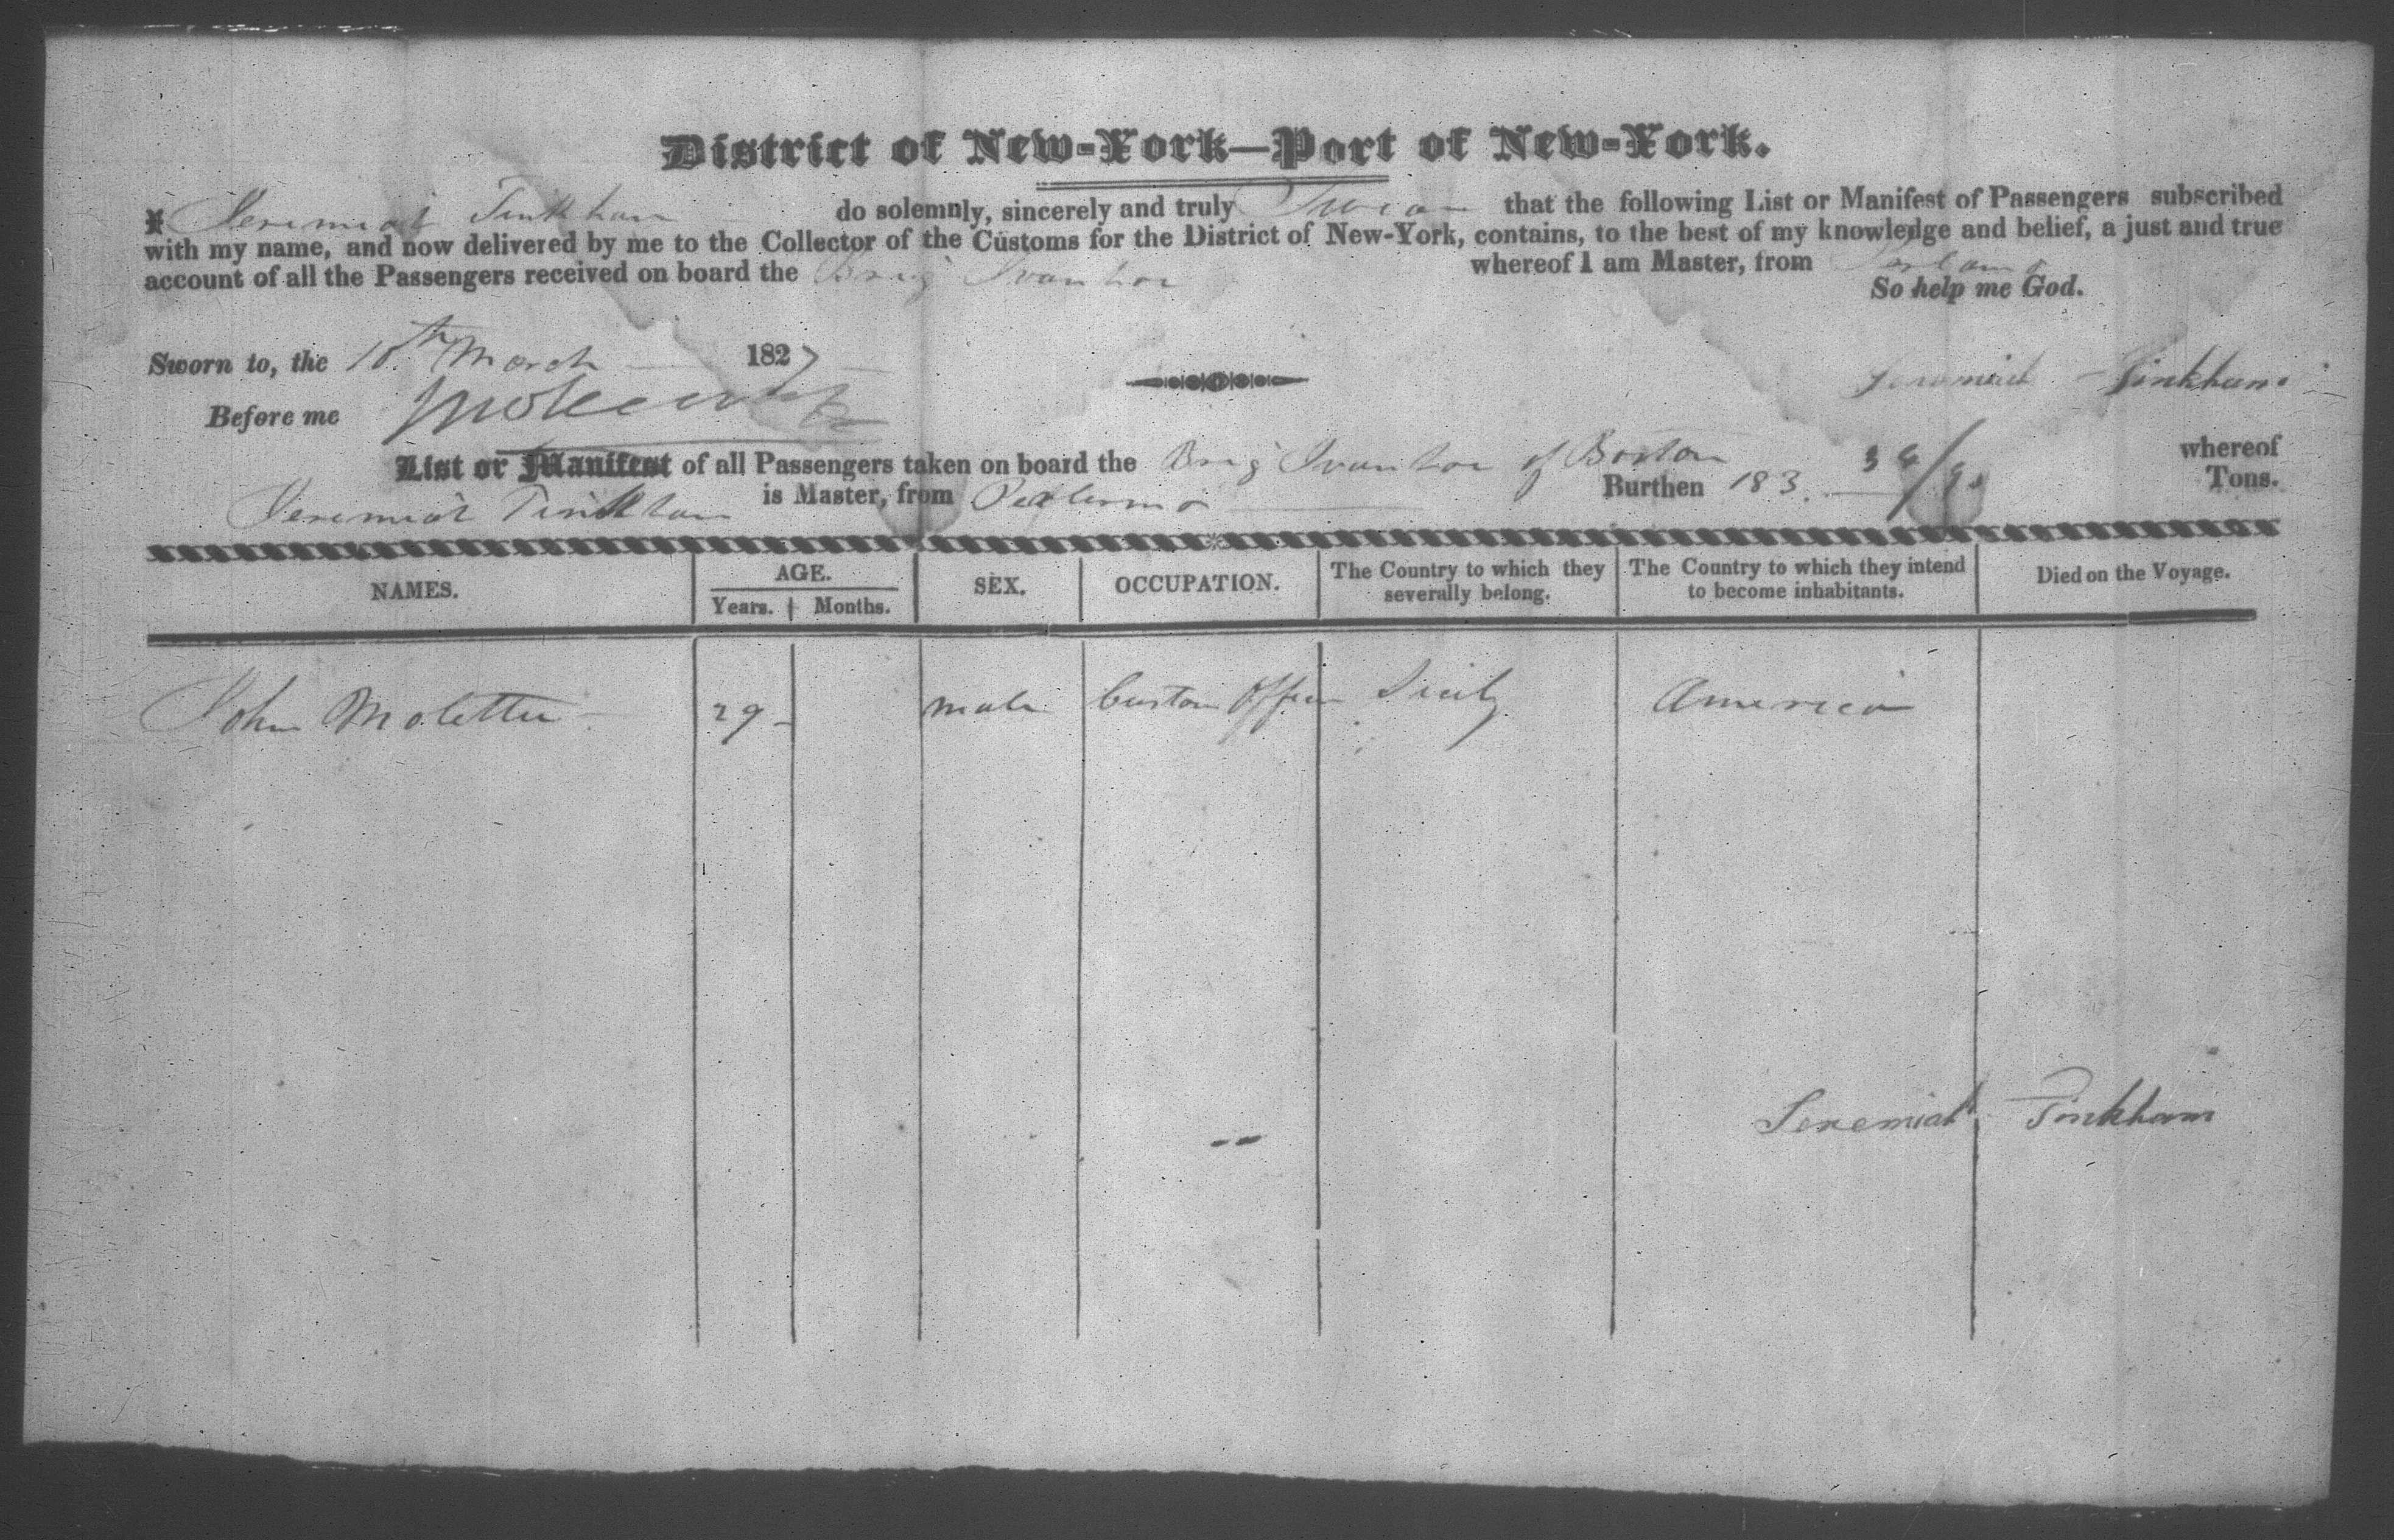 District of New-York—Port of New-York.
I Jeremiah Tinkham do solemnly, sincerely and truly Swear that the following List or Manifest of Passengers subscribed
with my name, and now delivered by me to the Collector of the Customs for the District of New-York, contains, to the best of my knowledge and belief, a just and true
account of all the Passengers received on board the Brig Ivanhoe whereof I am Master, from
So help me God.
Sworn to, the 10th March 1827
Jeremiah Tinkham
Before me
List or Manifest of all Passengers taken on board the Brig Ivanhoe of Boston whereof
Jeremiah Tinkham is Master, from Palermo Burthen 183. Tons.
NAMES. AGE. Years. Months. SEX. OCCUPATION. The Country to which they severally belong. The Country to which they intend to become inhabitants. Died on the Voyage.
John 29 male Custom Officer Sicily America
Jeremiah Tinkham